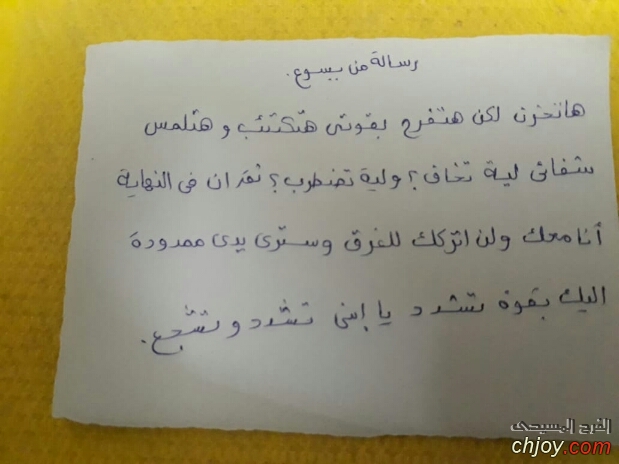 رسالة من يسوع.
هاتحزن لكن هتفرح بقوتى هتكتئب و هتلمس
شفائى لية تخاف؟ ولية تضطرب؟ ثق ان فى النهاية
أنا معك ولن اتركك للغرق وسترى يدى ممدودة
اليك بقوة تشدد يا إبنى تشدد و تشجع.
الفرح المسيحى
chjoy.com